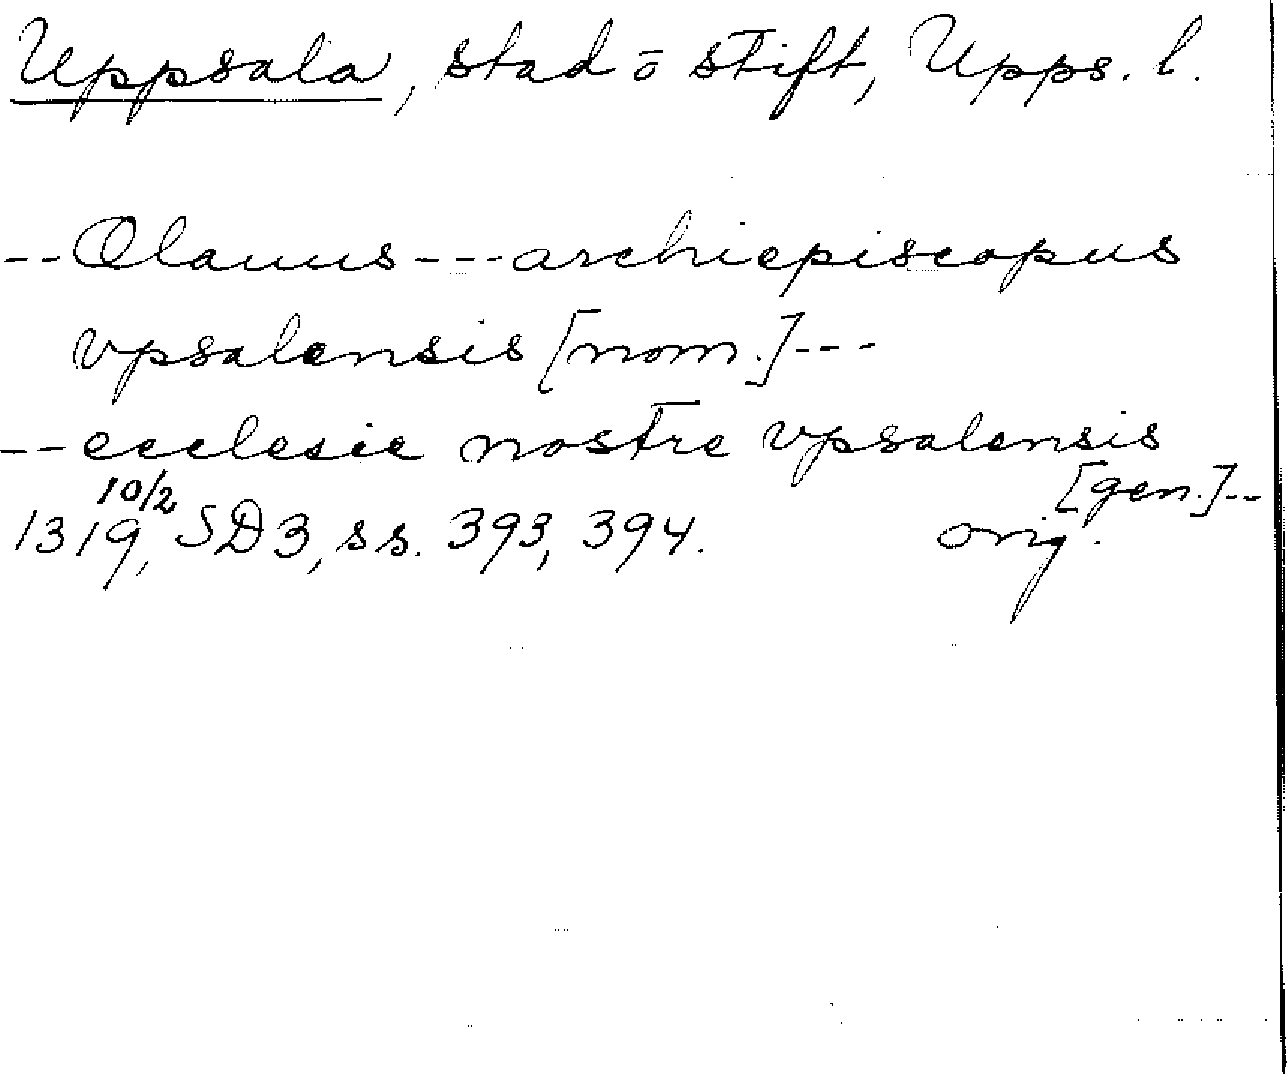 Uppsala, stad ō stift, Upps. l.
--Olauus---archiepiscopus
vpsalensis [nom.]---
--ecclesie nostre vpsalensis
[gen.]--
10/2
1319, SD3, ss. 393, 394. orig.